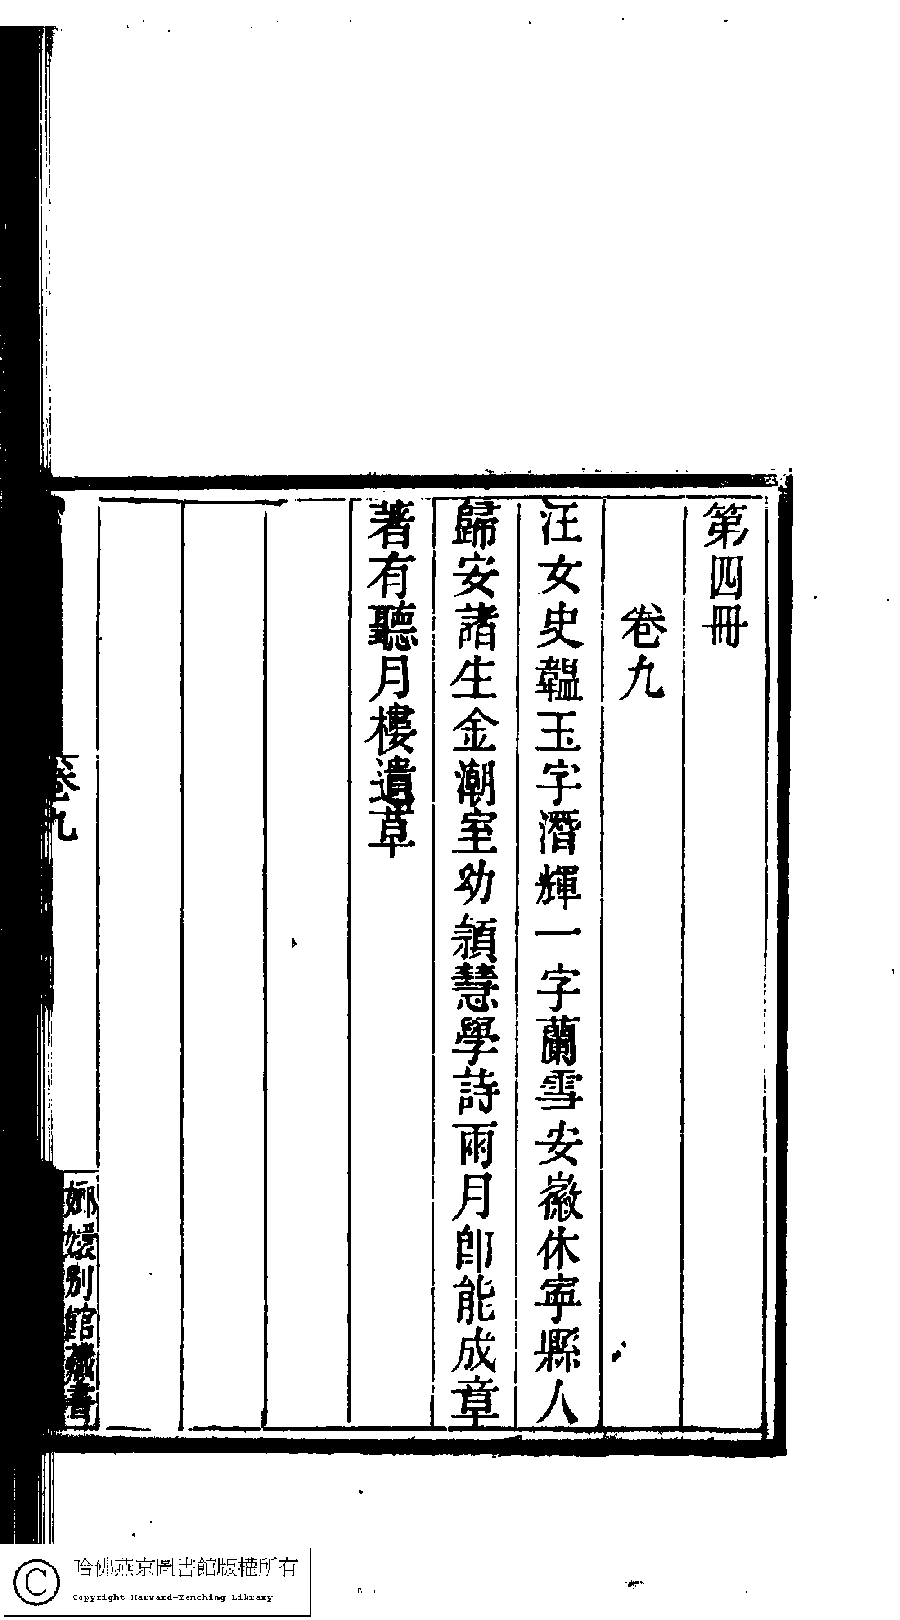 第四冊
卷九
汪女史韞玉字潛輝一字蘭雪安徽休寧縣人
歸安諸生金潮室幼頴慧學詩兩月卽能成章
著有聽月樓遺草
卷九
嫏嬛別館藏書
哈佛燕京圖書館版權所有
Copyright Harvard-Yenching Library